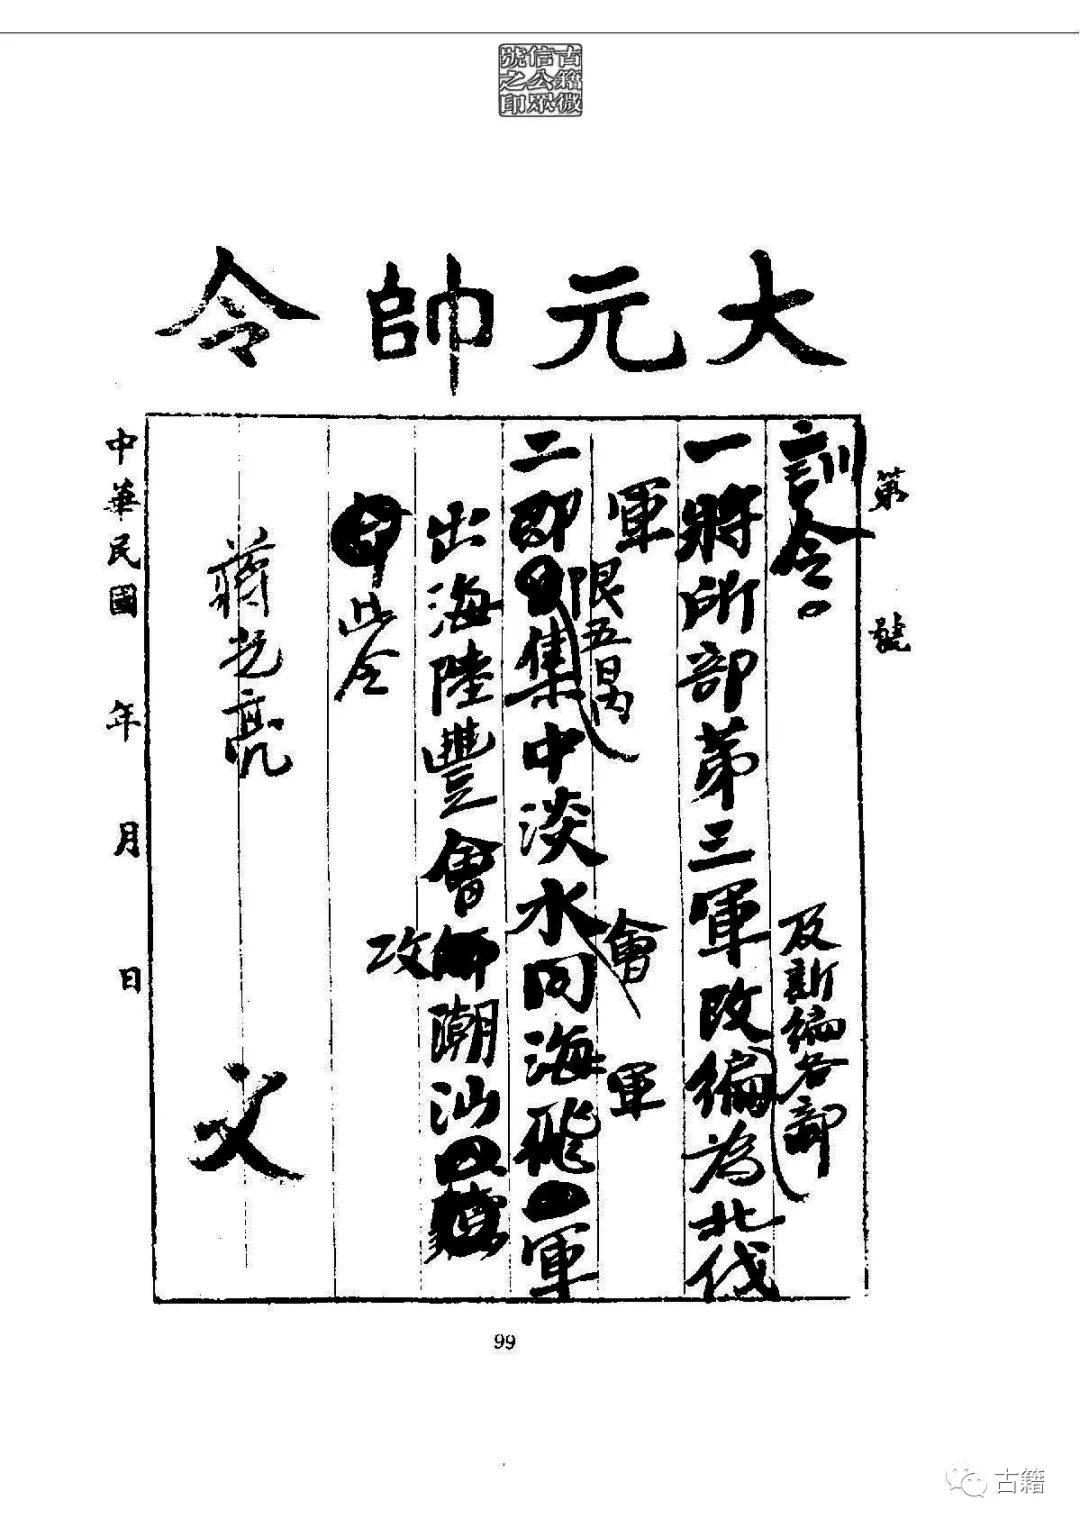 古籍微
信公眾
號之印
大元帥令
第 號
訓令。
及新編各部
一將所部第三軍改編為北伐
軍
限五日內
會 軍
二即集中淡水同海飛軍
出海陸豐會師潮汕
攻
此令
蔣光亮
文
中華民國 年 月 日
99
古籍